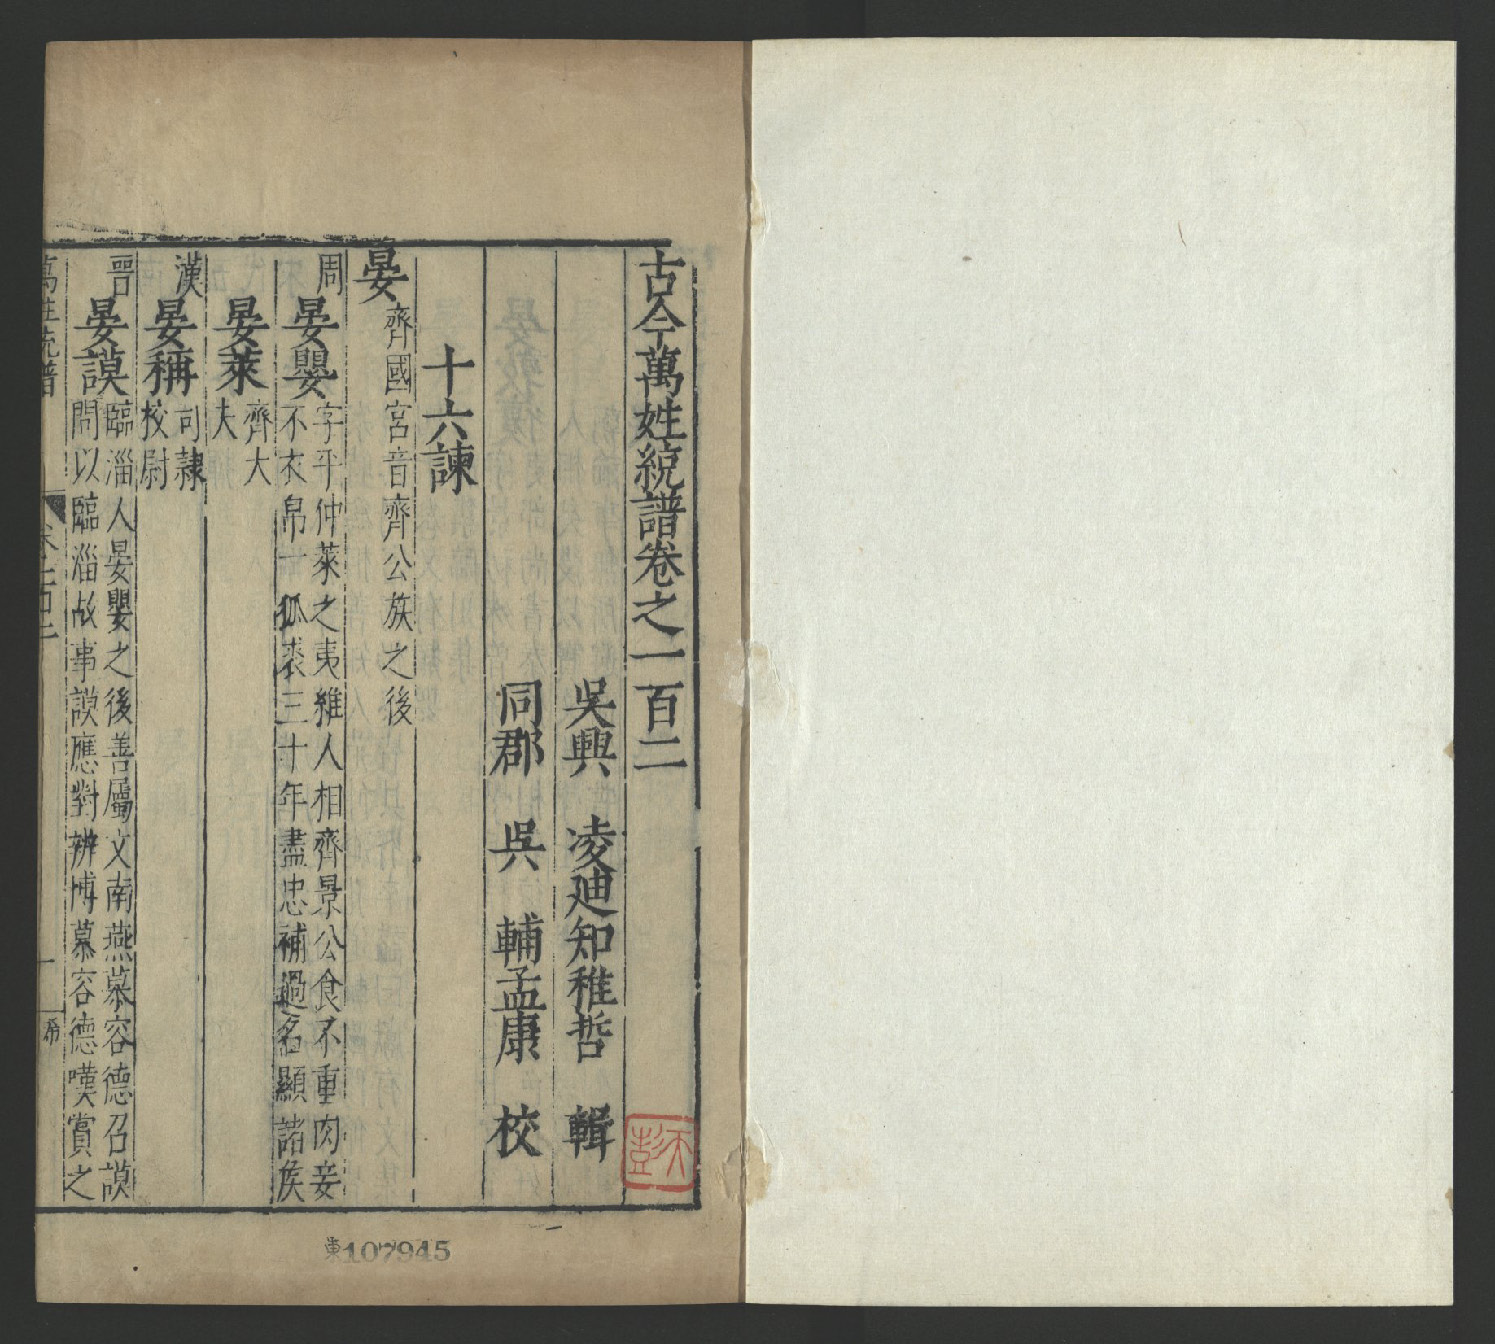 古今萬姓統譜卷之一百二
吳興 凌迪知稚哲 輯
同郡 吳 輔孟康 校
十六諫
晏 齊國宮音齊公族之後
周 晏嬰 字平仲萊之夷維人相齊景公食不重肉妾
不衣帛一狐裘三十年盡忠補過名顯諸侯
晏萊 齊大
夫
漢 晏稱 司隸
校尉
晉 晏謨 臨淄人晏嬰之後善屬文南燕慕容德召謨
問以臨淄故事謨應對辨博慕容德嘆賞之
萬姓統譜 卷之一百二 一 希
東107945